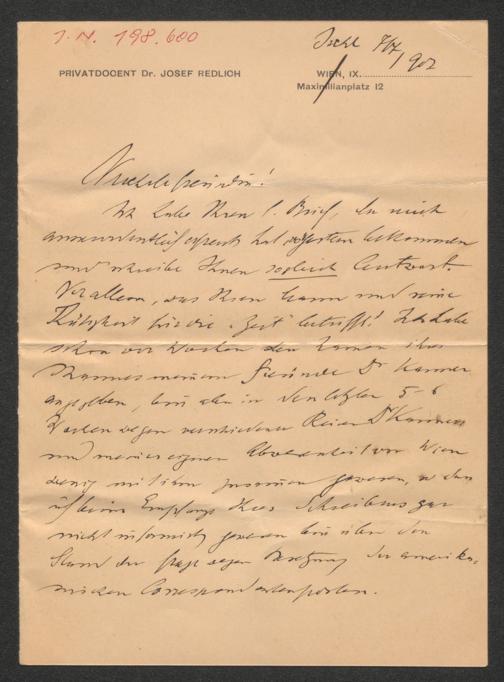 J. N. 198.600
Ischl 7/7 1902
PRIVATDOCENT Dr. JOSEF REDLICH
WIEN, IX.
Maximilianplatz 12
Ich habe Ihren l. Brief, der mich
ausserordentlich erfreut hat gestern bekommen
und schreibe Ihnen sogleich Antwort.
Vor allem, was Ihren Mann und seine
Thätigkeit für die "Zeit" betrifft! Ich habe
schon vor Wochen den Namen Ihres
Mannes meinem Freunde Dr Kanner
angegeben, bin aber in den letzten 5-6
Wochen wegen verschiedener Reisen Dr Kanners
und meiner eigenen Abwesenheit von Wien
wenig mit ihm zusammen gewesen, so dass
ich beim Empfang Ihres Schreibens gar
nicht informirt gewesen bin über den
Stand der Frage wegen Besetzung der amerika-
nischen Correspondentenposten.